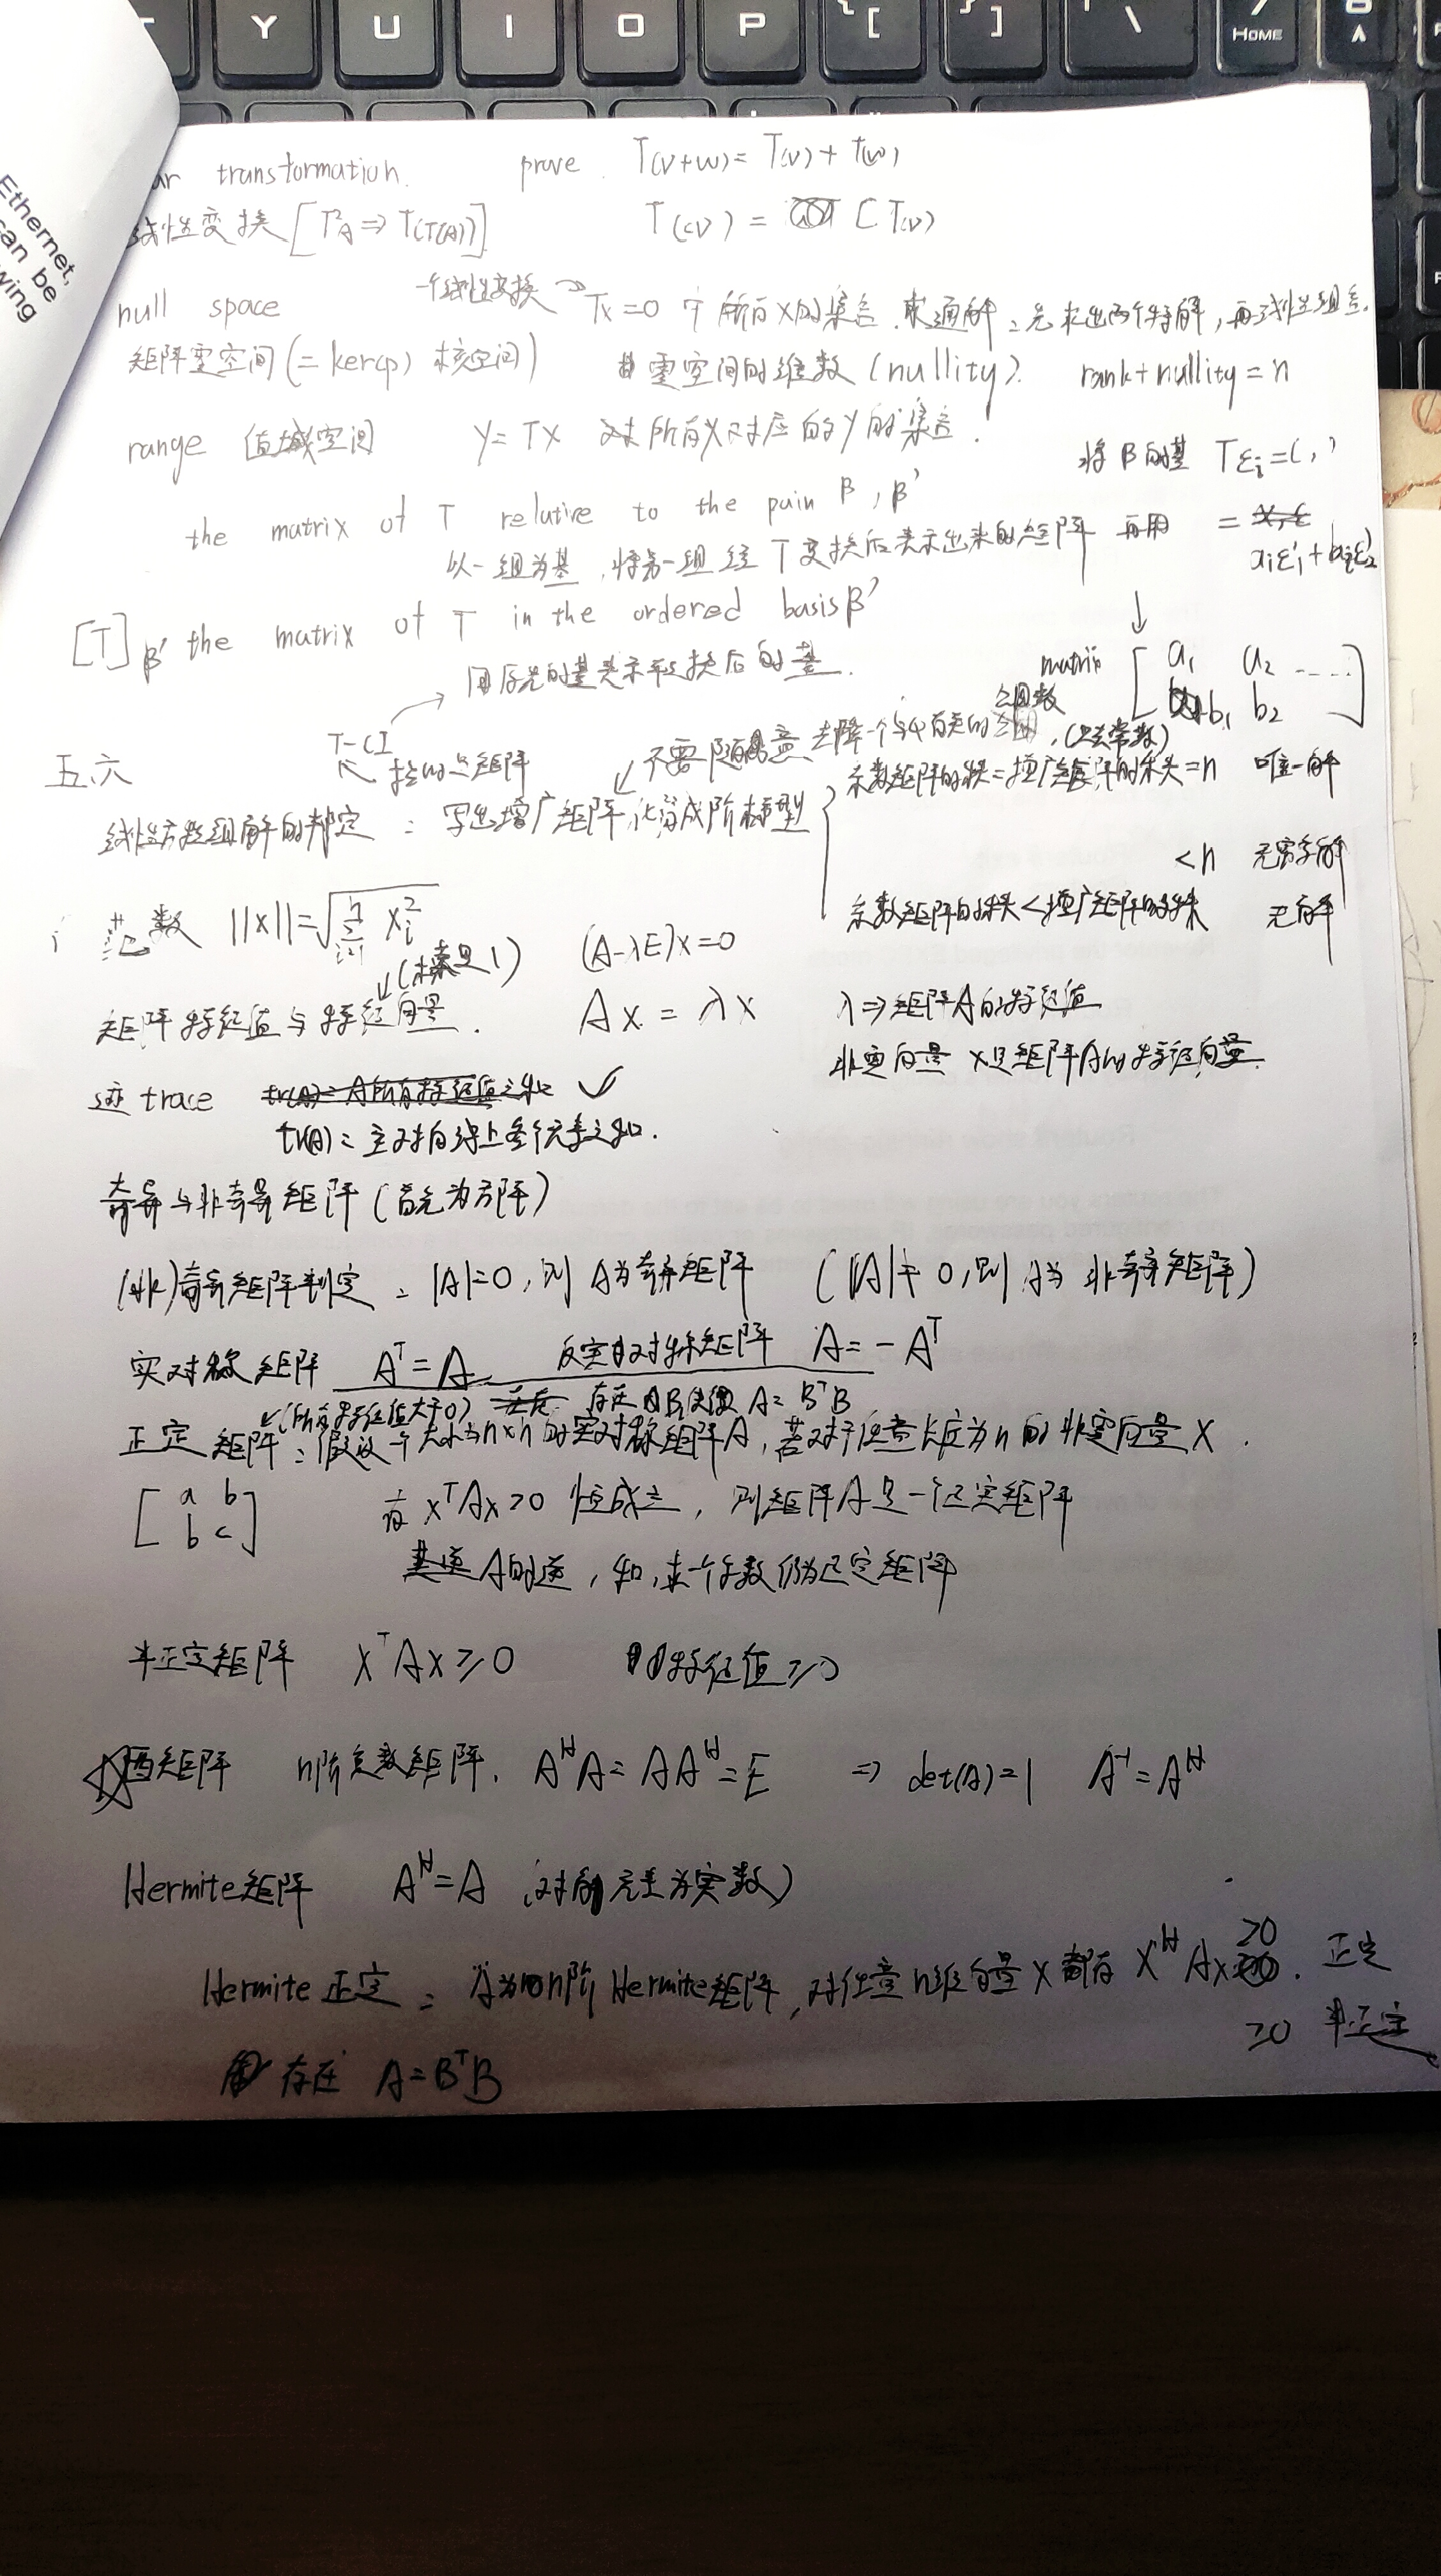 Y U I O P { [ } ] \ 7 HOME 8
Ethernet,
can be
wing
ar transformation. prove T(v+w)=T(v)+T(w)
线性变换 [T²A⇒T(T(A))] T(cv)= C T(v)
null space 一个线性变换→Tx=0 中所有X的集合.求通解:先求出两个特解,再线性组合.
矩阵零空间(=ker(φ) 核空间) 零空间的维数(nullity). rank+nullity=n
range 值域空间 y=Tx 对所有X对应的y的集合.
将β的基 Tεi=( , )
the matrix of T relative to the pain β,β′
以一组为基,将另一组经T变换后表示出来的矩阵 再用 =
aiε′1+biε′2
[T]β′ the matrix of T in the ordered basis β′
用原先的基表示变换后的基.
matrix [a1 a2 ....
b1 b2]
五.六 T-CI 指的是矩阵
不要随意去除一个与 有关的公因数,(只去常数)
线性方程组解的判定: 写出增广矩阵,化简成阶梯型
系数矩阵的秩=增广矩阵的秩=n 唯一解
<n 无穷多解
系数矩阵的秩<增广矩阵的秩 无解
范数 ||x||=√(n∑i=1 xi²) (A-λE)x=0
矩阵特征值与特征向量. Ax=λx λ⇒矩阵A的特征值
非零向量 x是矩阵A的特征向量.
迹trace tr(A)=A所有特征值之和 ✓
tr(A)=主对角线上各个元素之和.
奇异与非奇异矩阵(首先为方阵)
(非)奇异矩阵判定: |A|=0,则A为奇异矩阵 (|A|≠0,则A为非奇异矩阵)
实对称矩阵 Aᵀ=A 反实对称矩阵 A=-Aᵀ
(所有特征值大于0) 存在B,使得A=BᵀB
正定矩阵:假设一个大小为n×n的实对称矩阵A,若对于任意长度为n的非零向量X.
[a b
b c] 有xᵀAx>0恒成立,则矩阵A是一个正定矩阵
A的逆,和,乘一个数仍为正定矩阵
半正定矩阵 XᵀAX≥0 特征值≥0
酉矩阵 n阶复数矩阵. AᴴA=AAᴴ=E ⇒ det(A)=1 A⁻¹=Aᴴ
Hermite矩阵 Aᴴ=A (对角元素为实数)
Hermite正定: A为n阶Hermite矩阵,对任意n维向量X都有XᴴAX >0. 正定
≥0 半正定
存在 A=BᵀB